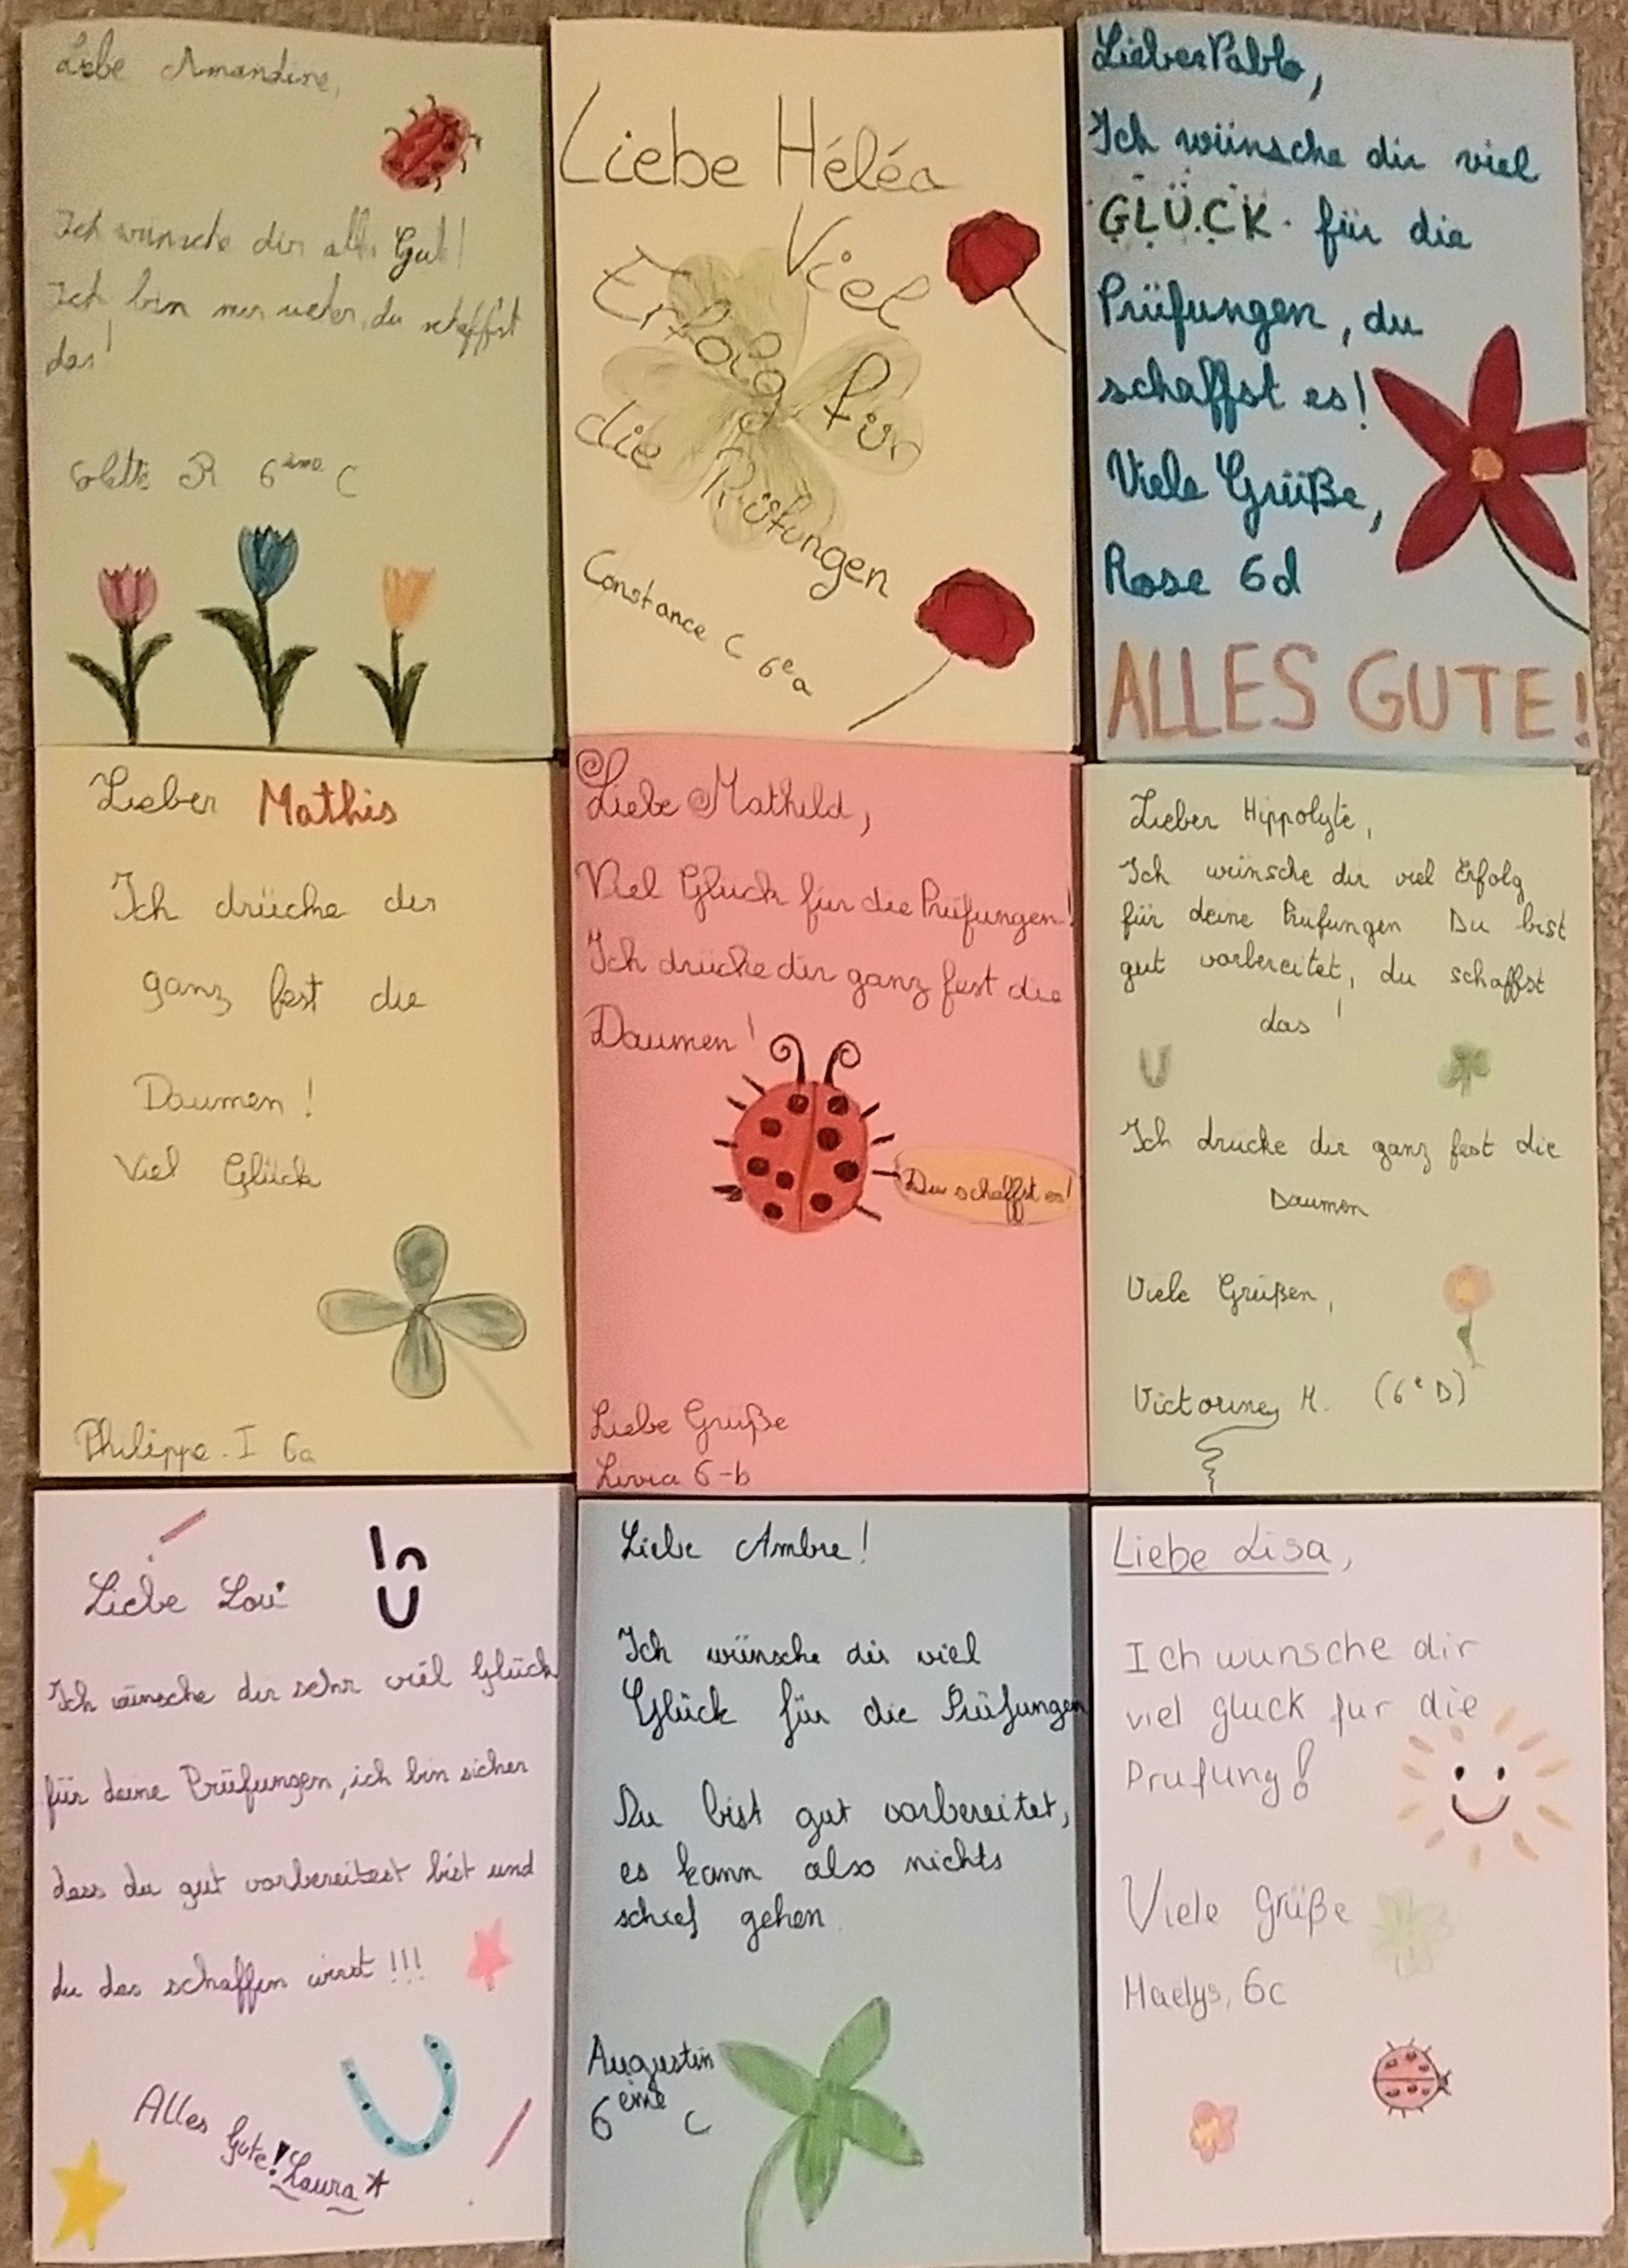 Liebe Amandine,
Ich wünsche dir alles Gut!
Ich bin mir sicher, du schaffst
das!
Colette R 6ème C
Liebe Héléa
Viel
Erfolg für
die
Prüfungen
Constance C 6e a
Lieber Pablo,
Ich wünsche dir viel
GLÜCK für die
Prüfungen, du
schaffst es!
Viele Grüße,
Rose 6d
ALLES GUTE!
Lieber Mathis
Ich drücke dir
ganz fest die
Daumen!
Viel Glück
Philippe. I 6a
Liebe Mathild,
Viel Glück für die Prüfungen!
Ich drücke dir ganz fest die
Daumen!
Du schaffst es!
Liebe Grüße
Livia 6-b
Lieber Hippolyte,
Ich wünsche dir viel Erfolg
für deine Prüfungen Du bist
gut vorbereitet, du schaffst
das!
Ich drücke dir ganz fest die
Daumen
Viele Grüßen,
Victorine, H. (6e D)
Liebe Lou
Ich wünsche dir sehr viel Glück
für deine Prüfungen, ich bin sicher
dass du gut vorbereitest bist und
du das schaffen wirst!!!
Alles
Gute!
Laura
Liebe Ambre!
Ich wünsche dir viel
Glück für die Prüfungen
Du bist gut vorbereitet,
es kann also nichts
schief gehen.
Augustin
6ème C
Liebe Lisa,
Ich wunsche dir
viel gluck fur die
Prufung!
Viele Grüße
Maelys, 6c